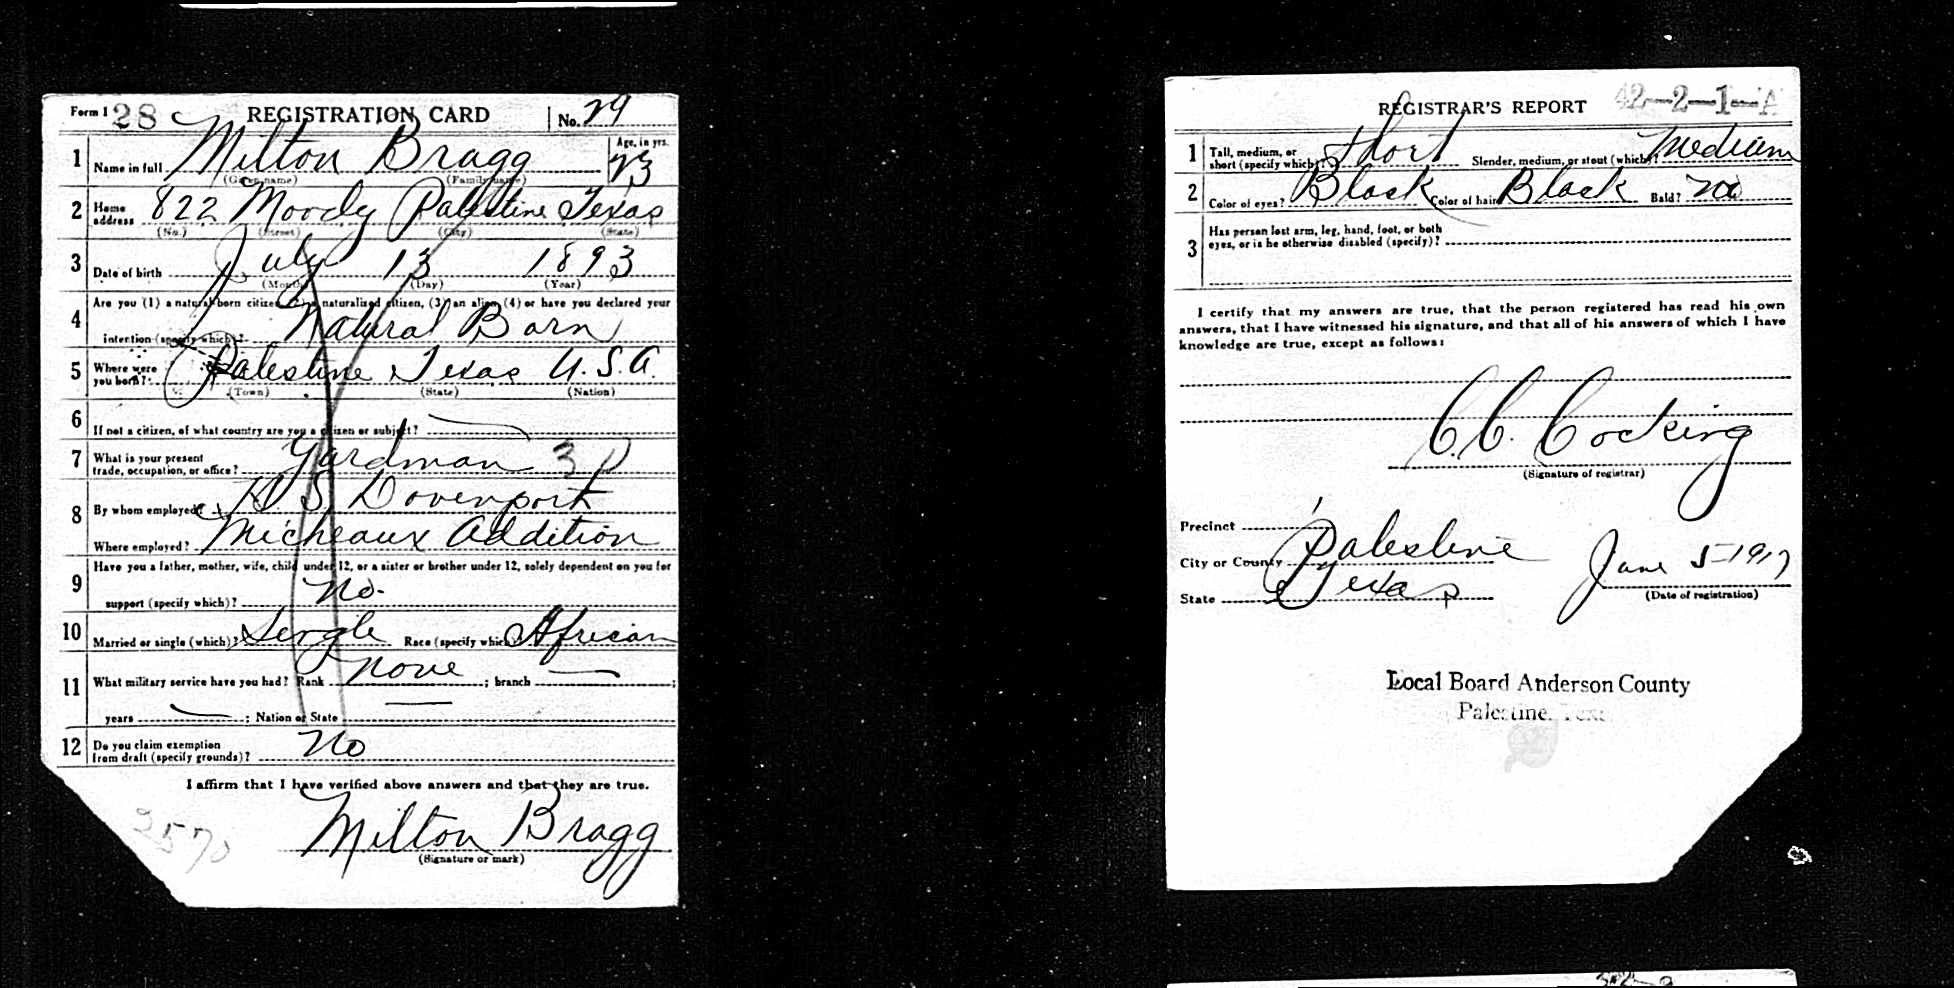 Form 1 28 REGISTRATION CARD No. 29
1 Name in full Milton Bragg Age, in yrs. 23
(Given name) (Family name)
2 Home address 822 Moody Palestine Texas
(No.) (Street) (City) (State)
3 Date of birth July 13 1893
(Month) (Day) (Year)
4 Are you (1) a natural born citizen, (2) a naturalized citizen, (3) an alien, (4) or have you declared your
intention (specify which)? Natural Born
5 Where were you born? Palestine Texas U.S.A.
(Town) (State) (Nation)
6 If not a citizen, of what country are you a citizen or subject?
7 What is your present trade, occupation, or office? Yardman 3
8 By whom employed? S. Dovenport
Where employed? Micheaux Addition
9 Have you a father, mother, wife, child under 12, or a sister or brother under 12, solely dependent on you for
support (specify which)? No.
10 Married or single (which)? Single Race (specify which) African
11 What military service have you had? Rank none ; branch ;
years ; Nation or State
12 Do you claim exemption from draft (specify grounds)? No
I affirm that I have verified above answers and that they are true.
2570
Milton Bragg
(Signature or mark)
REGISTRAR'S REPORT 42-2-1-A
1 Tall, medium, or short (specify which)? Short Slender, medium, or stout (which)? Medium
2 Color of eyes? Black Color of hair Black Bald? no
3 Has person lost arm, leg, hand, foot, or both
eyes, or is he otherwise disabled (specify)?
I certify that my answers are true, that the person registered has read his own
answers, that I have witnessed his signature, and that all of his answers of which I have
knowledge are true, except as follows:
C.C. Cocking
(Signature of registrar)
Precinct 1
City or County Palestine June 5-1917
State Texas (Date of registration)
Local Board Anderson County
Palestine, Texas